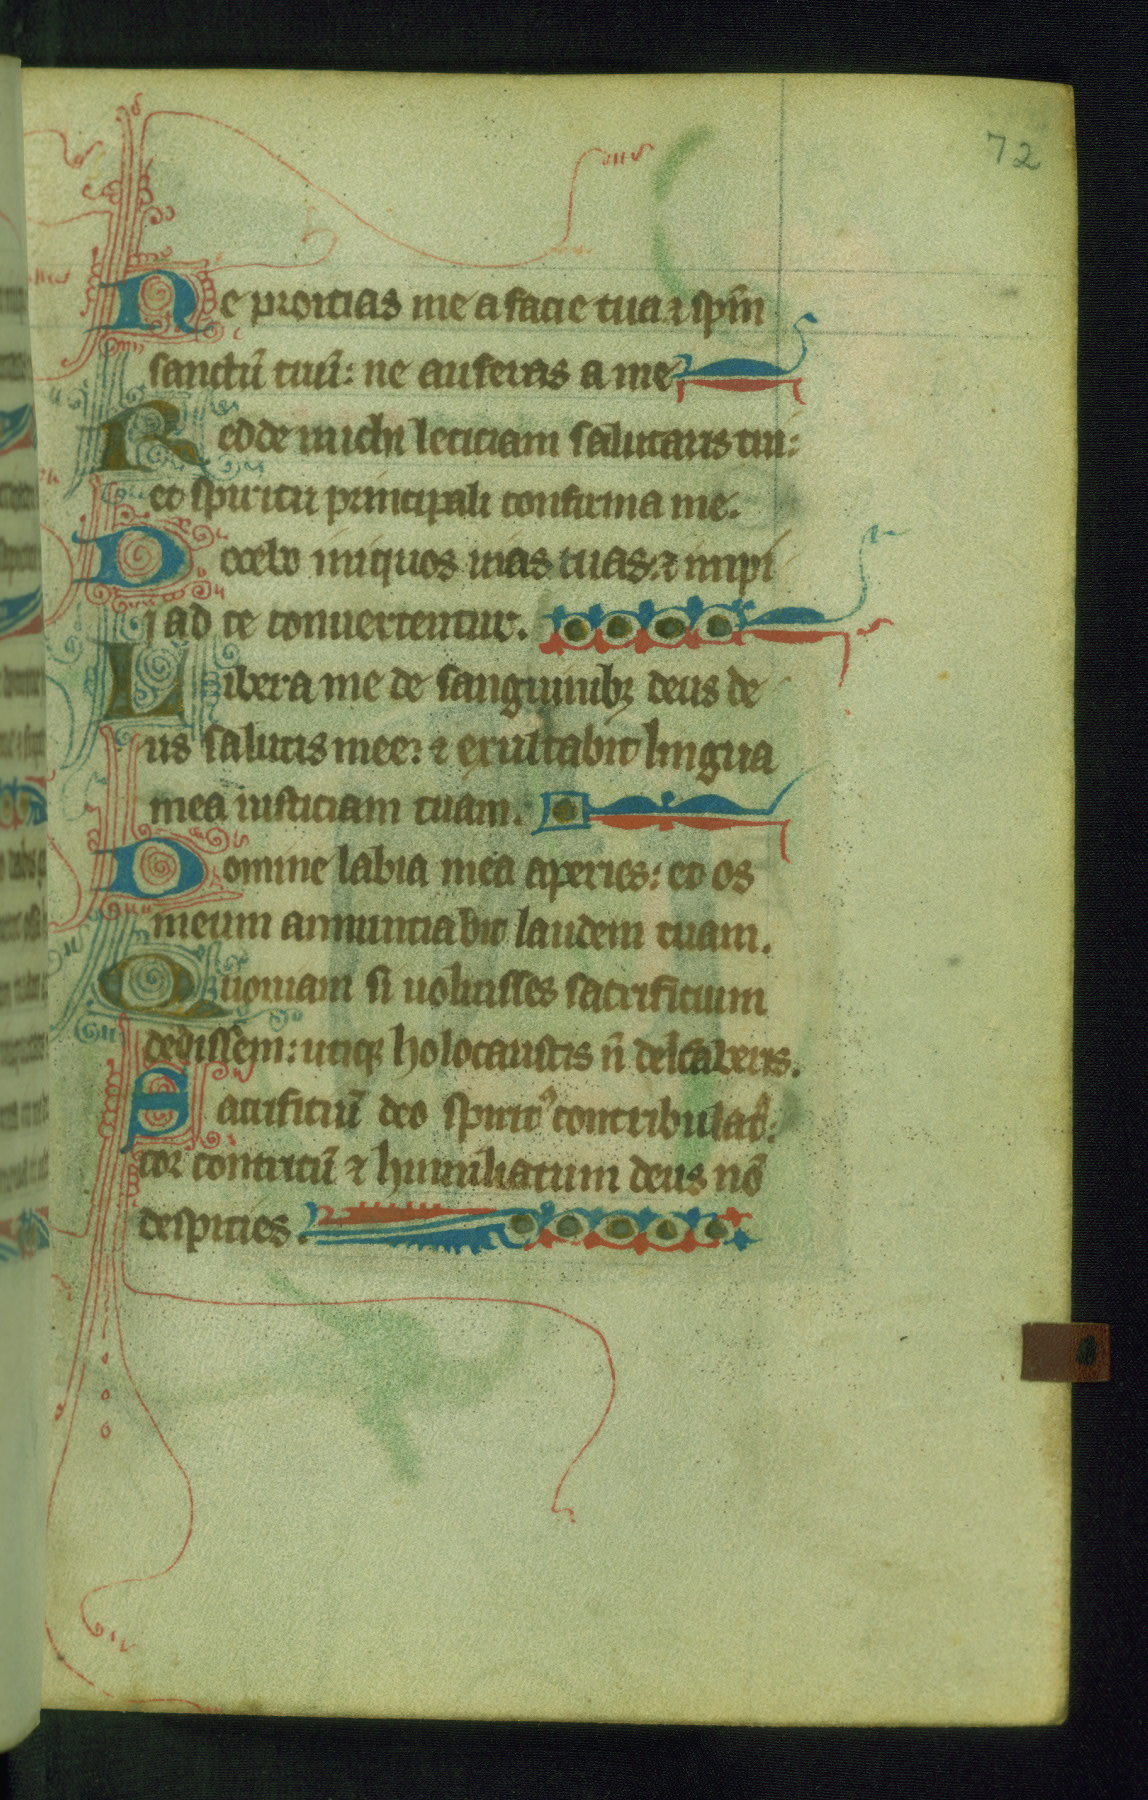 72
Ne proicias me a facie tua ⁊ sp̄m
sanctū tuū: ne auferas a me
Redde michi leticiam salutaris tui:
et spiritu principali confirma me.
Docebo iniquos uias tuas: ⁊ impi
j ad te conuertentur.
Libera me de sanguinibꝫ deus de
us salutis mee: ⁊ exultabit lingua
mea iusticiam tuam.
Domine labia mea aperies: et os
meum annunciabit laudem tuam.
Quoniam si uoluisses sacrificium
dedissem: utiqꝫ holocaustis n̄ delectaberis.
Sacrificiū deo spiritꝰ contribulatꝰ:
cor contritū ⁊ humiliatum deus nō
despicies.